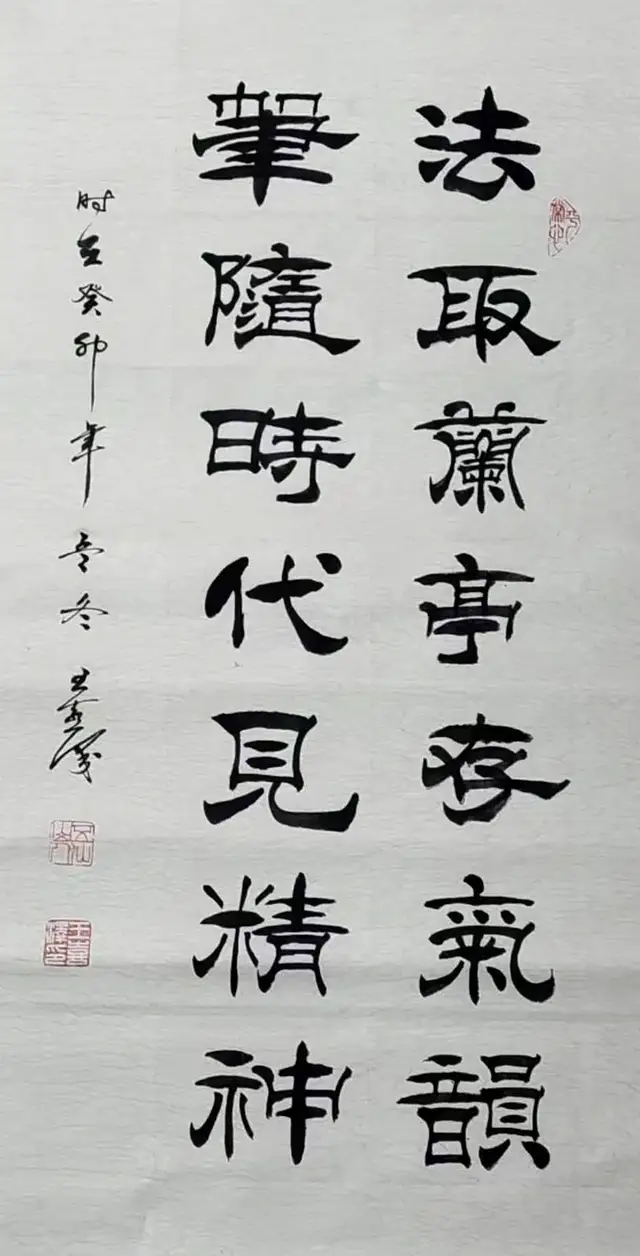 法取蘭亭存氣韻
筆隨時代見精神
时在癸卯年 冬 王